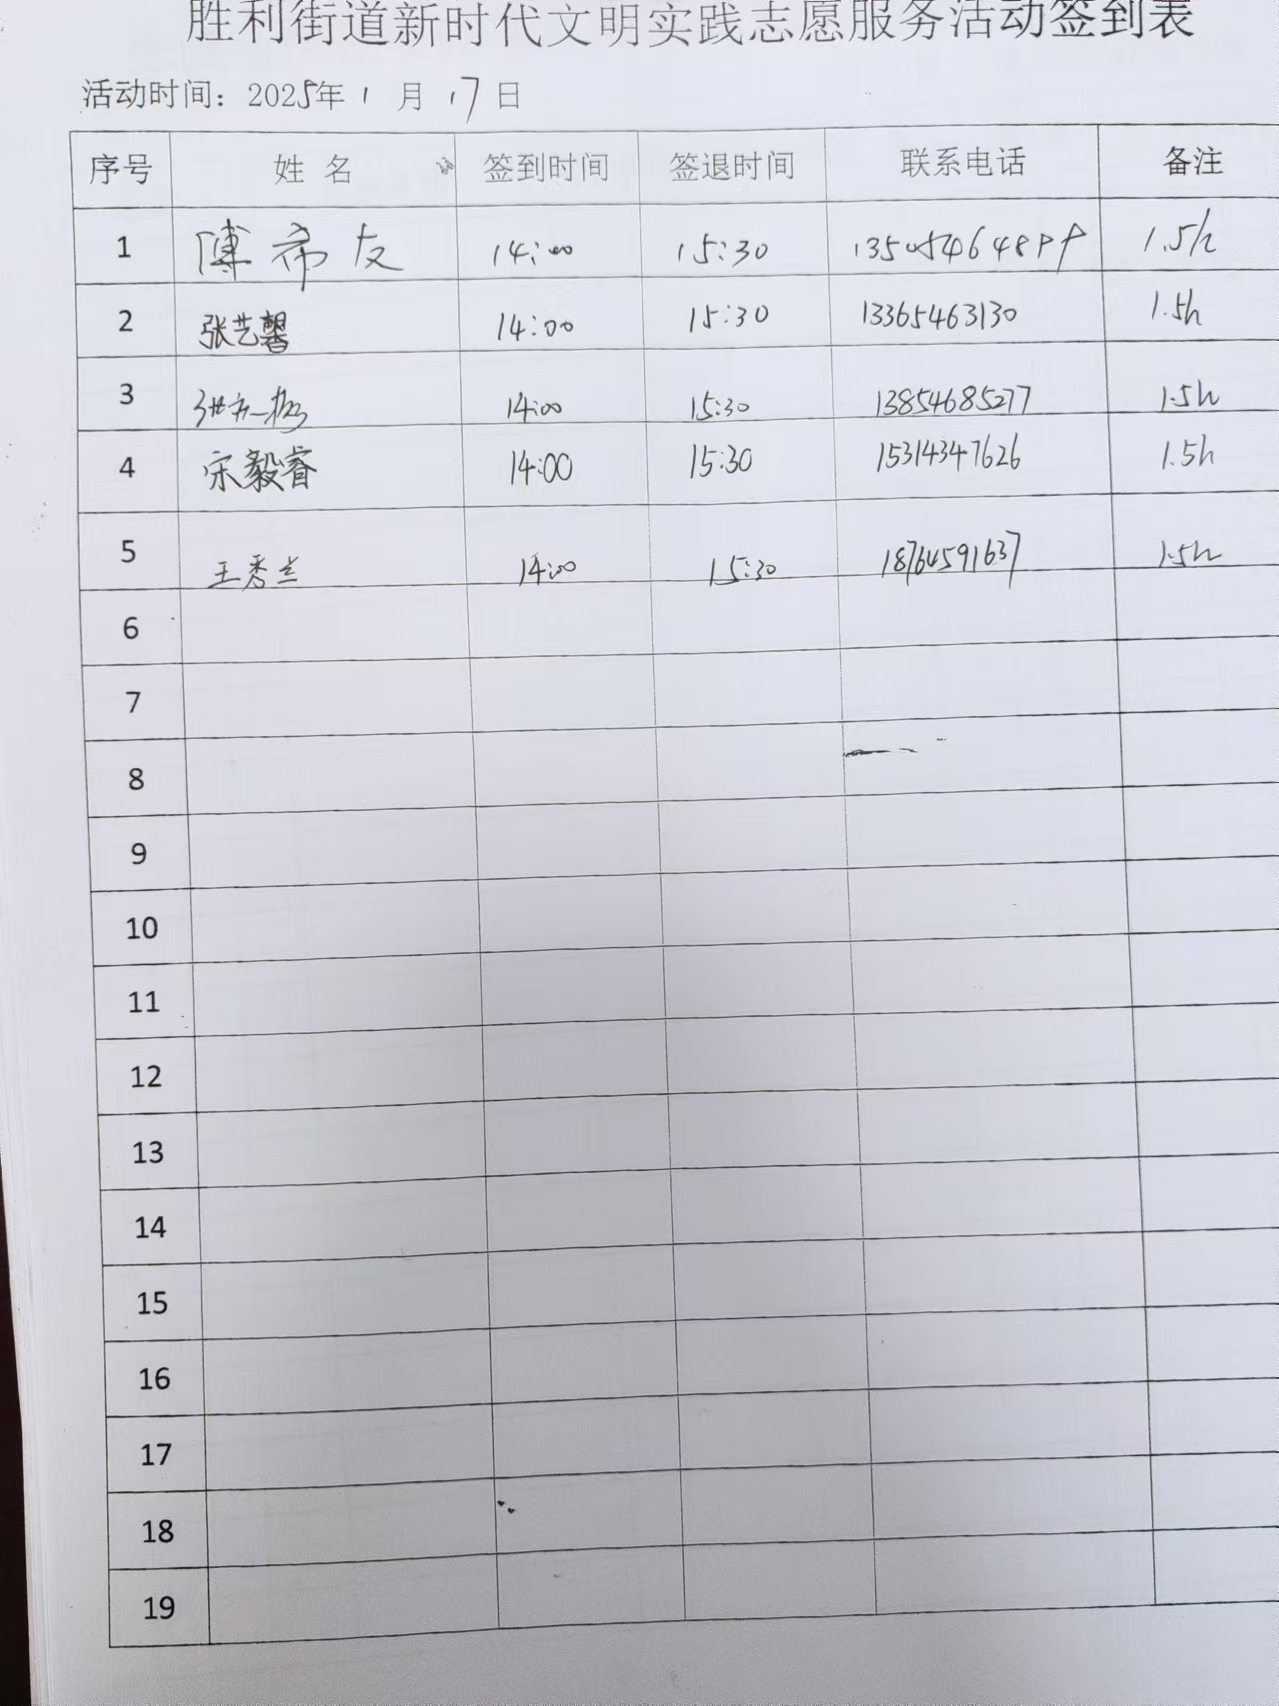 胜利街道新时代文明实践志愿服务活动签到表
活动时间：2025年 1 月 17 日
序号 姓 名 签到时间 签退时间 联系电话 备注
1 傅希友 14:00 15:30 13505464899 1.5h
2 张艺馨 14:00 15:30 13365463130 1.5h
3 14:00 15:30 13854685277 1.5h
4 宋毅睿 14:00 15:30 15314347626 1.5h
5 王秀兰 14:00 15:30 18764591637 1.5h
6
7
8
9
10
11
12
13
14
15
16
17
18
19